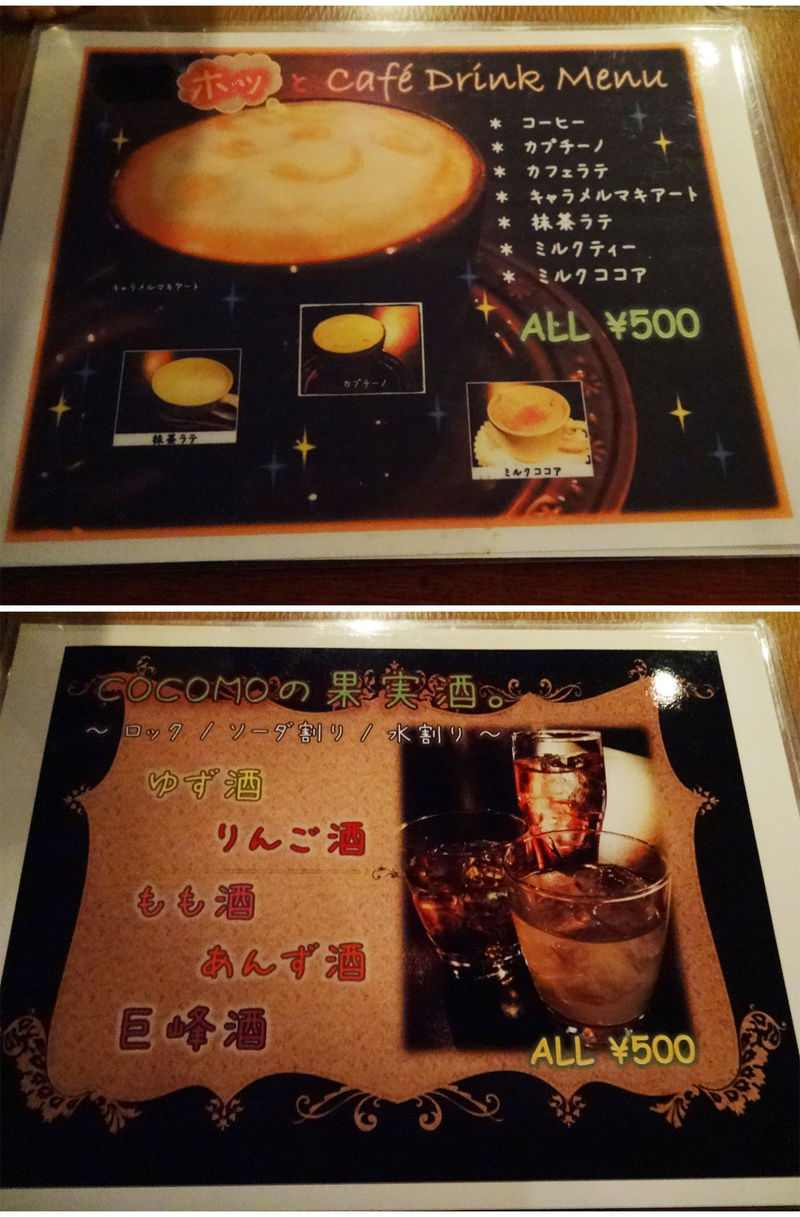 ホッと Café Drink Menu
* コーヒー
* カプチーノ
* カフェラテ
* キャラメルマキアート
* 抹茶ラテ
* ミルクティー
* ミルクココア
ALL ¥500
キャラメルマキアート
カプチーノ
抹茶ラテ
ミルクココア
COCOMOの果実酒。
～ ロック / ソーダ割り / 水割り ～
ゆず酒
りんご酒
もも酒
あんず酒
巨峰酒
ALL ¥500